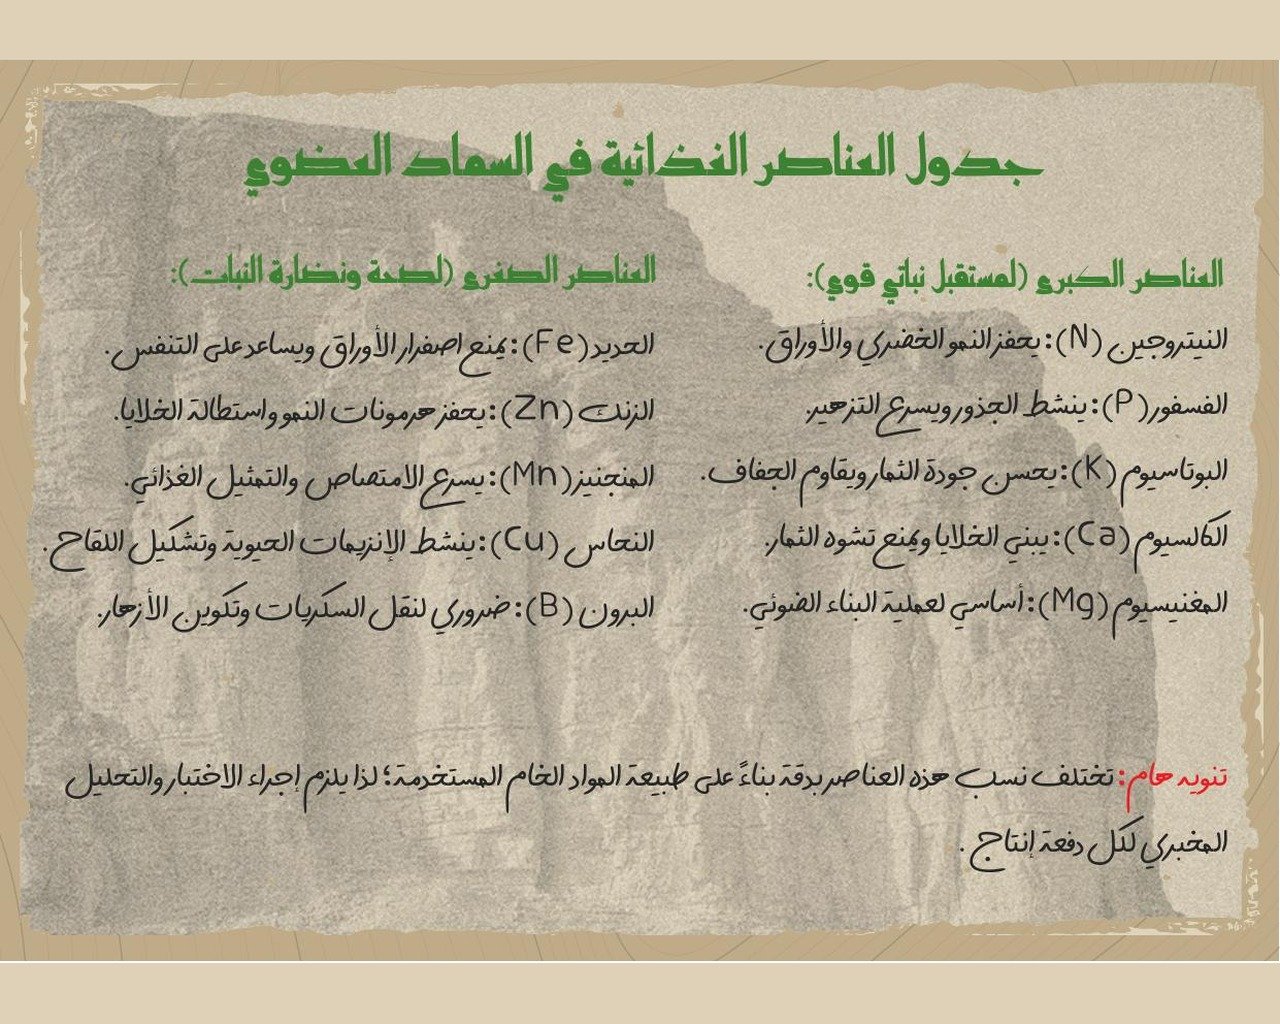 جدول العناصر الغذائية في السماد العضوي
العناصر الكبرى (لمستقبل نباتي قوي):
النيتروجين (N): يحفز النمو الخضري والأوراق.
الفسفور (P): ينشط الجذور ويسرع التزهير.
البوتاسيوم (K): يحسن جودة الثمار ويقاوم الجفاف.
الكالسيوم (Ca): يبني الخلايا ويمنع تشوه الثمار.
المغنيسيوم (Mg): أساسي لعملية البناء الضوئي.
العناصر الصغرى (لصحة ونضارة النبات):
الحديد (Fe): يمنع اصفرار الأوراق ويساعد على التنفس.
الزنك (Zn): يحفز هرمونات النمو واستطالة الخلايا.
المنجنيز (Mn): يسرع الامتصاص والتمثيل الغذائي.
النحاس (Cu): ينشط الإنزيمات الحيوية وتشكيل اللقاح.
البرون (B): ضروري لنقل السكريات وتكوين الأزهار.
تنويه هام: تختلف نسب هذه العناصر بدقة بناءً على طبيعة المواد الخام المستخدمة؛ لذا يلزم إجراء الاختبار والتحليل
المخبري لكل دفعة إنتاج .